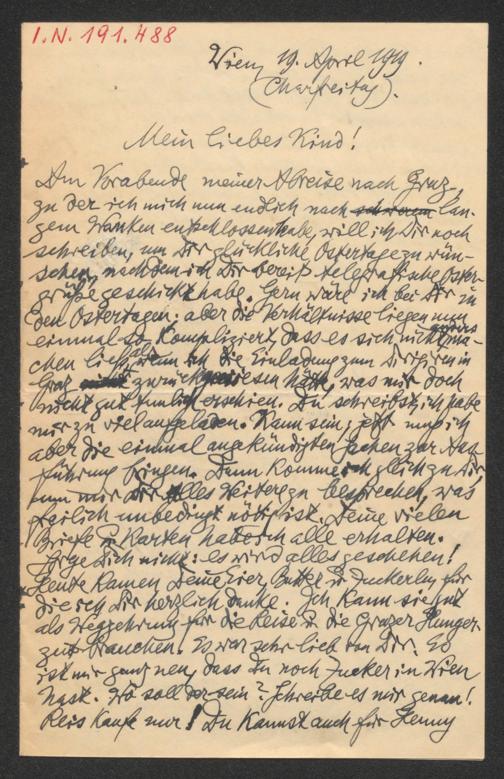 I.N. 191.488
Wien, 19. April 1919.
(Charfreitag).
Mein liebes Kind!
Am Vorabende meiner Abreise nach Graz,
zu der ich mich nun endlich nach lan-
gem Wanken entschlossen habe, will ich Dir noch
schreiben, um Dir glückliche Ostertage zu wün-
schen, nachdem ich Dir bereits telegrafische Oster-
grüße geschickt habe. Gern wäre ich bei Dir zu
den Ostertagen; aber die Verhältnisse liegen nun
einmal so kompliziert, dass es sich nicht anders ma-
chen liess, wenn ich die Einladung zum Dirigieren in
Graz zurückweisen hätte, was mir doch
nicht gut tunlich erschien. Du schreibst, ich habe
mir zu viel aufgeladen. Kann sein; jetzt muß ich
aber die einmal angekündigten Sachen zur Auf-
führung bringen. Dann komme ich gleich zu Dir,
um mir Dir alles Weitere zu besprechen, was
freilich unbedingt nötig ist. Deine vielen
Briefe u Karten habe ich alle erhalten.
Sorge Dich nicht: es wird alles geschehen!
Heute kamen Deine Eier, Butter u Zuckerln für
die ich Dir herzlich danke. Ich kann sie gut
als Wegzehrung für die Reise u die Grazer Hunger-
brauchen. Es war sehr lieb von Dir. Es
ist mir ganz neu, dass Du noch Zucker in Wien
hast. Wo soll der sein? Schreibe es mir genau!
Reis kaufe nur! Du kannst auch für Henny